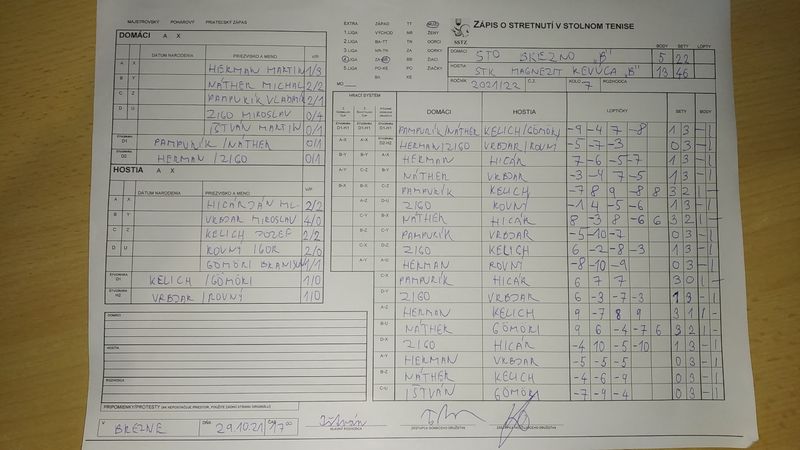 MAJSTROVSKÝ POHÁROVÝ PRIATEĽSKÝ ZÁPAS
ZÁPIS O STRETNUTÍ V STOLNOM TENISE
SSTZ
EXTRA ZÁPAD TT MUŽI
1.LIGA VÝCHOD NR ŽENY
2.LIGA BA-TT TN DORCI
3.LIGA NR-TN ZA DORKY
4.LIGA ZA-BB BB ŽIACI
5.LIGA PO-KE PO ŽIAČKY
BA KE
BODY SETY LOPTY
STO BREZNO "B" 5 22
STK MAGNEZIT REVÚCA "B" 13 46
ROČNÍK 2021/22 Č.Z. KOLO 7 ROZHODCA
DOMÁCI A X
DÁTUM NARODENIA PRIEZVISKO A MENO V/P
A X HERMAN MARTIN 1/3
B Y NÁTHER MICHAL 2/2
C Z PAMPURÍK VLADIMÍR 2/1
D U ZIGO MIROSLAV 0/4
IŠTVÁN MARTIN 0/1
ŠTVORHRA D1 PAMPURÍK/NÁTHER 0/1
ŠTVORHRA D2 HERMAN/ZIGO 0/1
HOSTIA A X
DÁTUM NARODENIA PRIEZVISKO A MENO V/P
A X HICÁR JÁN ML. 2/2
B Y VRBJAR MIROSLAV 4/0
C Z KELICH JOZEF 2/2
D U ROVNÝ IGOR 2/0
GÖMÖRI 1/1
ŠTVORHRA KELICH/GÖMÖRI 1/0
ŠTVORHRA H2 VRBJAR/ROVNÝ 1/0
HRACÍ SYSTÉM DOMÁCI HOSTIA LOPTIČKY SETY BODY
PAMPURÍK/NÁTHER KELICH/GÖMÖRI -9 -4 7 -8 1 3 - 1
HERMAN/ZIGO VRBJAR/ROVNÝ -5 -7 -3 0 3 - 1
HERMAN HICÁR 7 -6 -5 -7 1 3 - 1
NÁTHER VRBJAR -3 -4 7 -5 1 3 - 1
PAMPURÍK KELICH -7 8 9 -8 8 3 2 1 -
ZIGO ROVNÝ -1 4 -5 -6 1 3 - 1
NÁTHER HICÁR 8 -3 8 -6 6 3 2 1 -
PAMPURÍK VRBJAR -5 -10 -7 0 3 - 1
ZIGO KELICH 6 -2 -8 -3 1 3 - 1
HERMAN ROVNÝ -8 -10 -9 0 3 - 1
PAMPURÍK HICÁR 6 7 7 3 0 1 -
ZIGO VRBJAR 6 -3 -7 -3 1 3 - 1
HERMAN KELICH 9 -7 8 9 3 1 1 -
NÁTHER GÖMÖRI 9 6 -4 -7 6 3 2 1 -
ZIGO HICÁR -4 10 -5 -10 1 3 - 1
HERMAN VRBJAR -5 -5 -5 0 3 - 1
NÁTHER KELICH -4 -6 -9 0 3 - 1
IŠTVÁN GÖMÖRI -7 -9 -4 0 3 - 1
DOMÁCI
HOSTIA
ROZHODCA
PRIPOMIENKY/PROTESTY (AK NEPOSTAČUJE PRIESTOR, POUŽITE ZADNÚ STRANU ORIGINÁLU)
V BREZNE DŇA 29.10.21 ČAS 17⁰⁰ Ištván